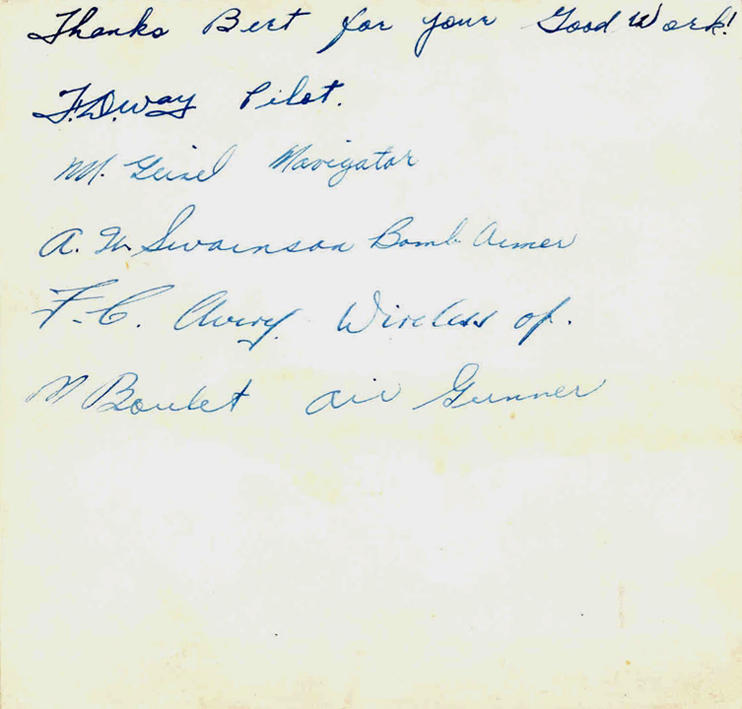 Thanks Bert for your Good Work!
F.D. Way Pilot.
M. Geisel Navigator
A. W. Swainson Bomb Aimer
F. C. Avery. Wireless op.
M Boulet Air Gunner